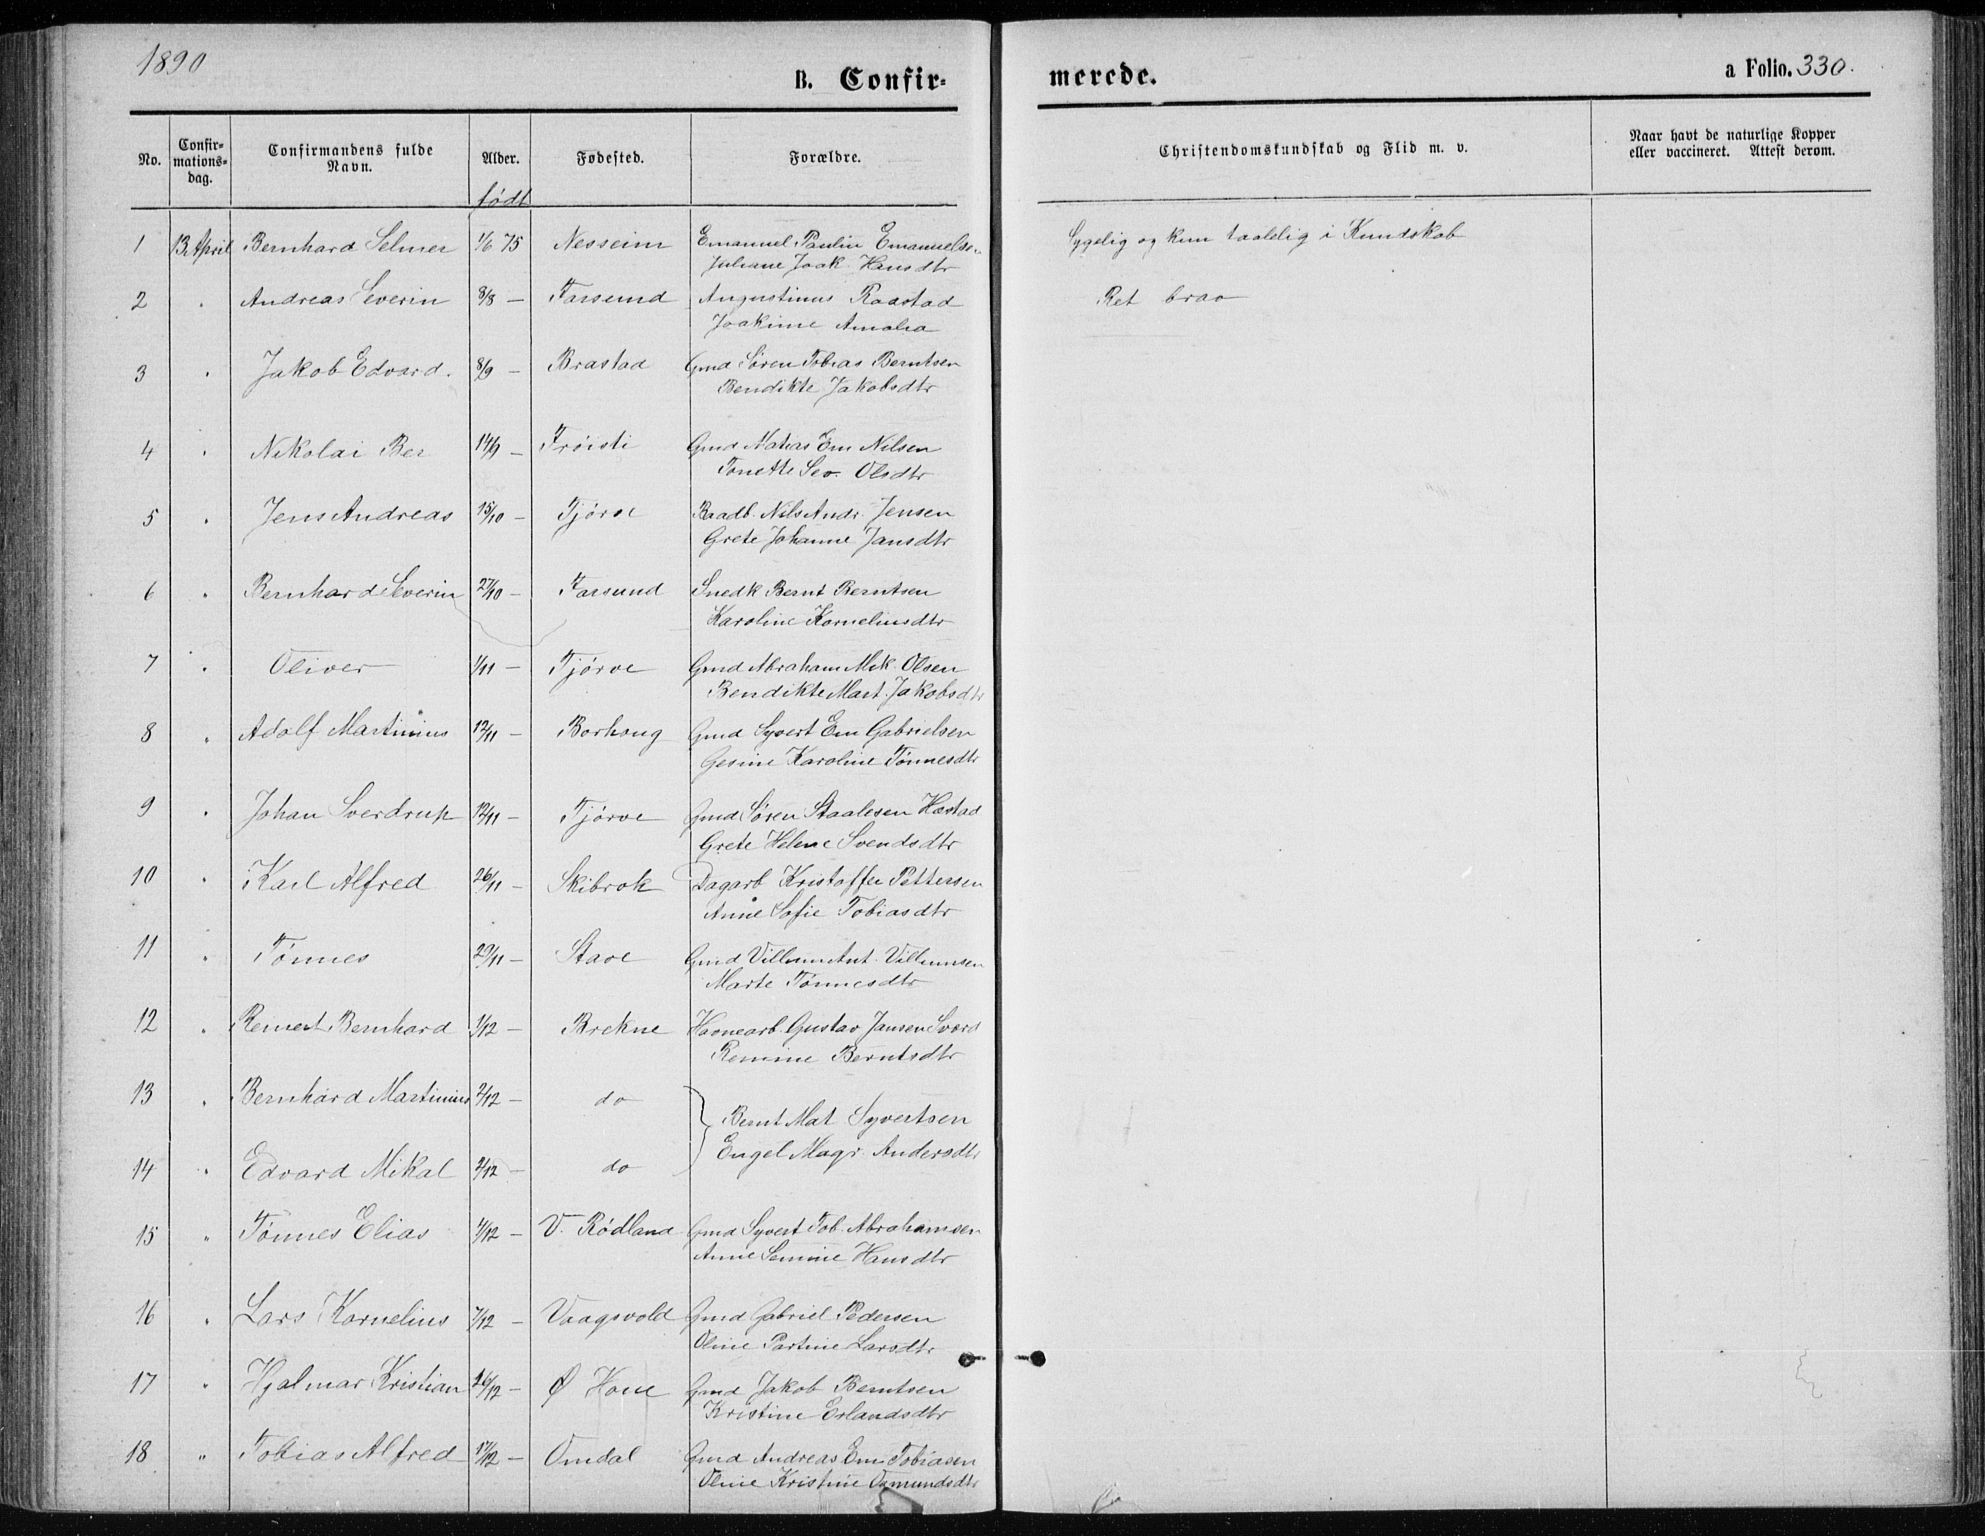 1890
B. Confir=
merede.
a Folio. 330.
No.
Confir=
mations=
dag.
Confirmandens fulde
Navn.
Alder.
født
Fødested.
Forældre.
Christendomskundskab og Flid m. v.
Naar havt de naturlige Kopper
eller vaccineret. Attest derom.
1 13 April Bernhard Selmer 1/6 75 Nesseim Emanuel Paulin Emanuelsen Sygelig og kun taalelig i Kundskab
Juliane Joak. Hansdtr
2 " Andreas Severin 8/8 — Farsund Augustinus Raastad Ret brav
Joakime Amalia
3 " Jakob Edvard. 8/9 — Brastad Gmd Søren Tobias Berntsen
Bendikte Jakobsdtr
4 " Nikolai Ber 14/9 — Frøisti Gmd Matias Em Nilsen
Tonette Sev. Olsdtr
5 " Jens Andreas 15/10 — Tjørve Baadb. Nils Andr. Jensen
Grete Johanne Jansdtr
6 " Bernhard Severin 27/10 — Farsund Snedk Bernt Berntsen
Karoline Korneliusdtr
7 " Oliver 1/11 — Tjørve Gmd Abraham Mik. Olsen
Bendikte Mart. Jakobsdtr
8 " Adolf Martinius 12/11 — Borhoug Gmd Syvert Em Gabrielsen
Gesine Karoline Tønnesdtr
9 " Johan Sverdrup 12/11 — Tjørve Gmd Søren Staalesen Hæstad
Grete Helene Svendsdtr
10 " Karl Alfred 26/11 — Skibrok Dagarb Kristoffer Pettersen
Anne Sofie Tobiasdtr
11 " Tønnes 29/11 — Stave Gmd Villum Ant. Villumsen
Marte Tønnesdtr
12 " Reinert Bernhard 1/12 — Brekne Havnearb. Gustav Jansen Sværd
Remine Berntsdtr
13 " Bernhard Martinius 2/12 — do Bernt Mat Syvertsen
14 " Edvard Mikal 2/12 — do Engel Magr. Andersdtr
15 " Tønnes Elias 4/12 — V. Rødland Gmd Syvert Tob. Abrahamsen
Anne Semine Hansdtr
16 " Lars Kornelius 7/12 — Vaagsvold Gmd Gabriel Pedersen
Oline Partine Larsdtr
17 " Hjalmar Kristian 16/12 — Ø Hove Gmd Jakob Berntsen
Kristine Erlandsdtr
18 " Tobias Alfred 17/12 — Omdal Gmd Andreas Em Tobiasen
Oline Kristine Osmundsdtr